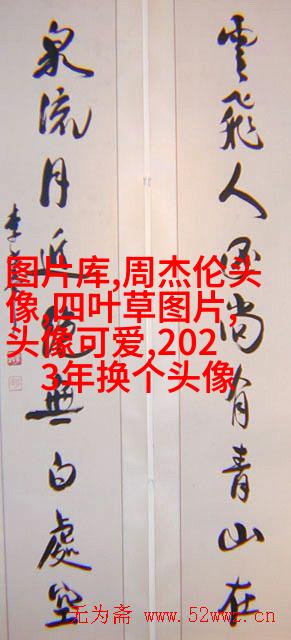 雲飛人尚有青山在
泉流月無白處空
李
图片库,周杰伦头
像,四叶草图片,
头像可爱,202
3年换个头像
无为斋 www.52wwz.cn